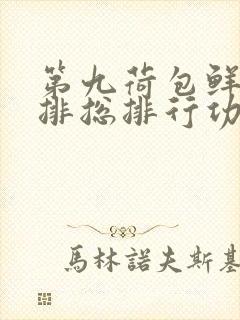 第九荷包鲜
排总排行功
馬林諾夫斯基